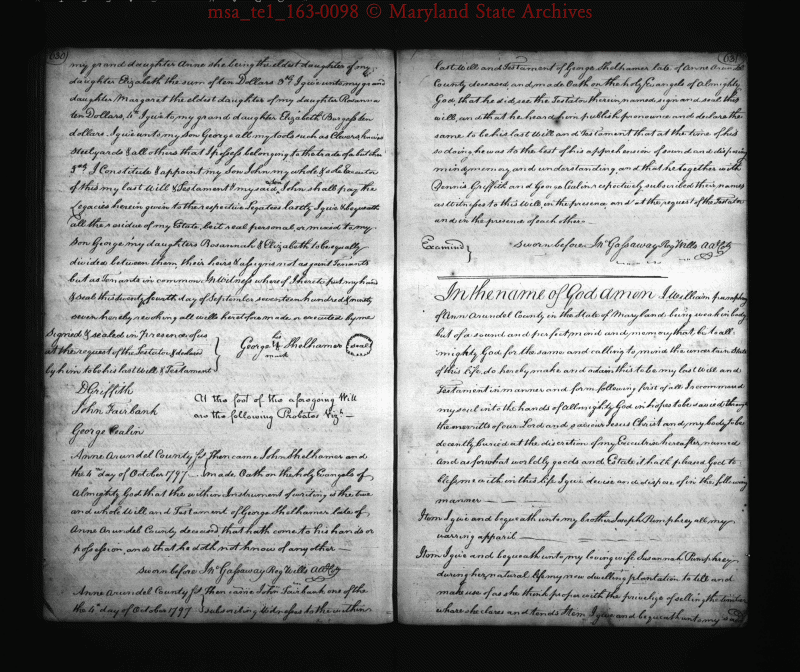 msa_te1_163-0098 © Maryland State Archives
630
my grand daughter Anne she being the eldest daughter of my
daughter Elizabeth the sum of ten Dollars 3rdly I give unto my grand
daughter Margaret the eldest daughter of my daughter Rosanna
ten Dollars, 4th I give to my grand daughter Elizabeth Burgess ten
dollars I give unto my son George all my tools such as Cleavers knives
Steelyards & all others that I possess belonging to the trade of a butcher
I Constitute & appoint my Son John my whole & sole Executor
of this my last Will & Testament & my said son John shall pay the
Legacies herein given to the respective Legatees lastly I give & bequeath
all the residue of my Estate, be it real personal, or mixed to my
son George my daughters Rosannah & Elizabeth to be equally
divided between them, their heirs & assigns not as joint Tenants
but as Tenants in common. In Witness whereof I hereto put my hand
& seal this twenty fourth day of September seventeen hundred & ninety
seven hereby revoking all wills heretofore made or executed by me
Signed & sealed in Presence of us
at the request of the Testator & declared
by him to be his last Will & Testament
George his mark Shelhamer seal
D Griffith
John Fairbank
George Cealin
At the foot of the aforegoing Will
are the following Probates Vizt
Anne Arundel County Sst Then came John Shelhamer and
the 4th day of October 1797 made Oath on the holy Evangels of
Almighty God that the within Instrument of writing is the true
and whole Will and Testament of George Shelhamer late of
Anne Arundel County deceased that hath come to his hands or
possession, and that he doth not know of any other
Sworn before Jno Gassaway Reg Wills AA Cty
Anne Arundel County Sst Then came John Fairbank one of the
the 4th day of October 1797 subscribing Witnesses to the within
631
last Will and Testament of George Shelhamer late of Anne Arundel
County deceased and made Oath on the holy Evangels of Almighty
God, that he did see the Testator therein named sign and seal this
will, and that he heard him publish pronounce and declare the
same to be his last Will and Testament that at the time of his
so doing he was to the best of his apprehension of sound and disposing
mind memory and understanding and that he together with
Dennis Griffith and George Cealin respectively subscribed their names
as Witnesses to this Will, in the presence and at the request of the Testator
and in the presence of each other
Examined
Sworn before Jno Gassaway Reg Wills AA Cty
In the name of God amen I William pumphrey
of Ann Arundel County in the State of Maryland being weak in body
but of a sound and perfect mind and memory thanks be to all
mighty God for the same and calling to mind the uncertain state
of this life, do hereby make and ordain this to be my last Will and
Testament in manner and form following first of all I recommend
my soul into the hands of Allmighty God in hopes to be saved through
the merritts of our Lord and saviour Jesus Christ and my body to be
decently buried at the discretion of my Executrix hereafter named
And as for what worldly goods and Estate it hath pleased God to
bless me with in this life I give devise and dispose of in the following
manner
Item I give and bequeath unto my brother Joseph Pumphrey all my
warring apparil
Item I give and bequeath unto my loving wife Susannah Pumphrey
during her natural life my now dwelling plantation to till and
make use of as she think proper with the privilege of selling the timber
where she clares and tends Item I give and bequeath unto my